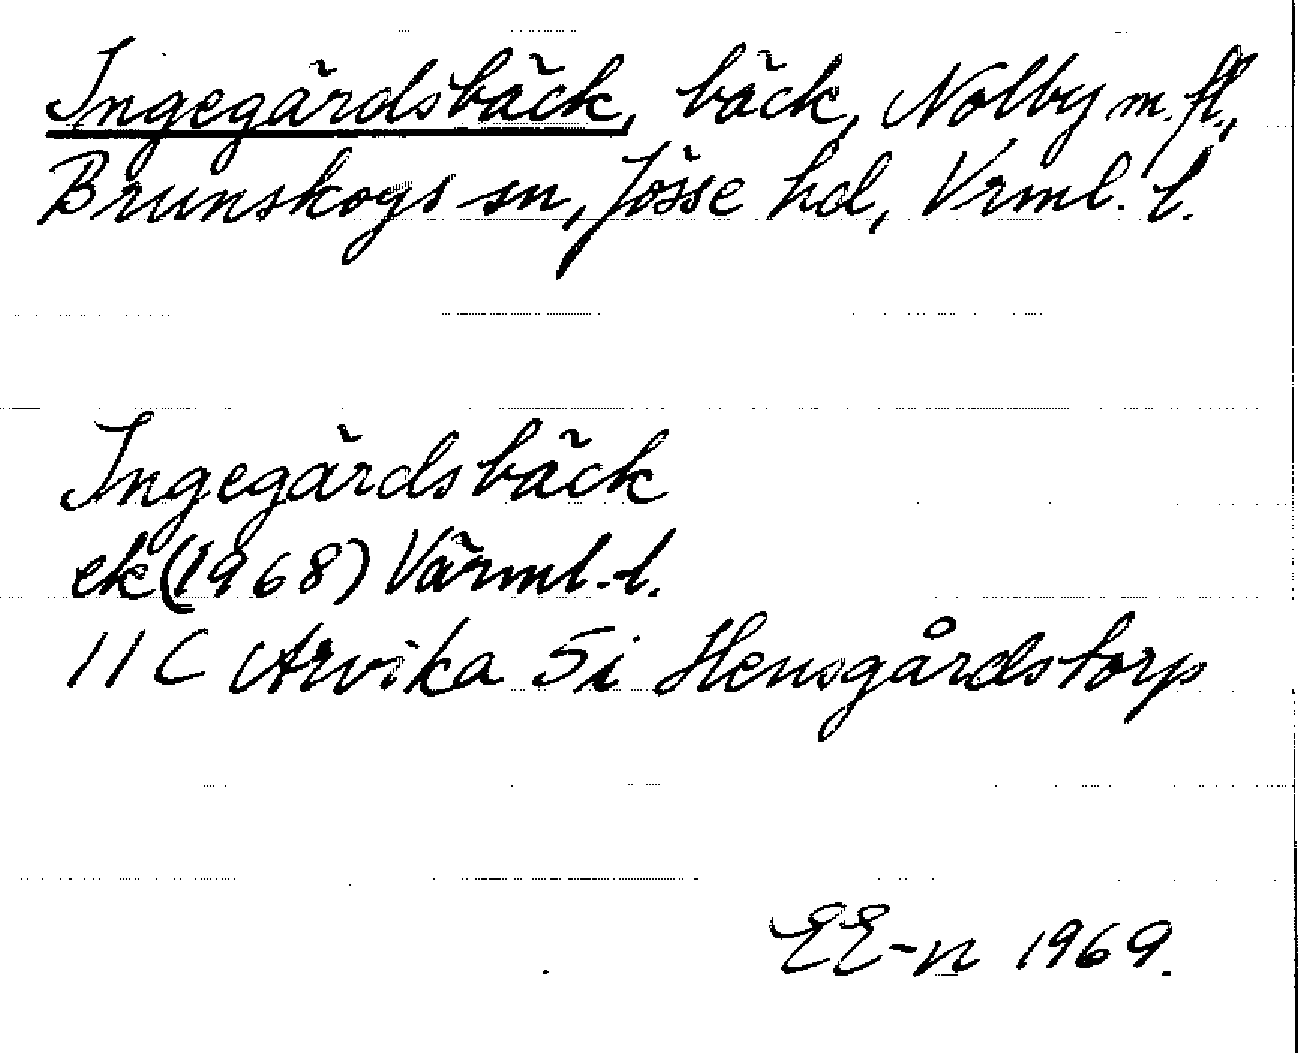 Ingegärdsbäck, bäck, Nolby m.fl.,
Brunskogs sn, Jösse hd, Vrml. l.
Ingegärdsbäck
ek (1968) Värml. l.
11 C Arvika 5i Hensgårdstorp
EE-n 1969.